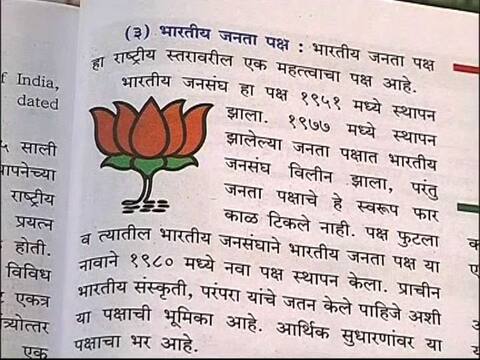 (३) भारतीय जनता पक्ष : भारतीय जनता पक्ष
हा राष्ट्रीय स्तरावरील एक महत्त्वाचा पक्ष आहे.
भारतीय जनसंघ हा पक्ष १९५१ मध्ये स्थापन
झाला. १९७७ मध्ये स्थापन
झालेल्या जनता पक्षात भारतीय
जनसंघ विलीन झाला, परंतु
जनता पक्षाचे हे स्वरूप फार
काळ टिकले नाही. पक्ष फुटला
व त्यातील भारतीय जनसंघाने भारतीय जनता पक्ष या
नावाने १९८० मध्ये नवा पक्ष स्थापन केला. प्राचीन
भारतीय संस्कृती, परंपरा यांचे जतन केले पाहिजे अशी
या पक्षाची भूमिका आहे. आर्थिक सुधारणांवर या
पक्षाचा भर आहे.
India,
dated
साली
राष्ट्रीय
प्रयत्न
होती.
विविध
एकत्र
एक